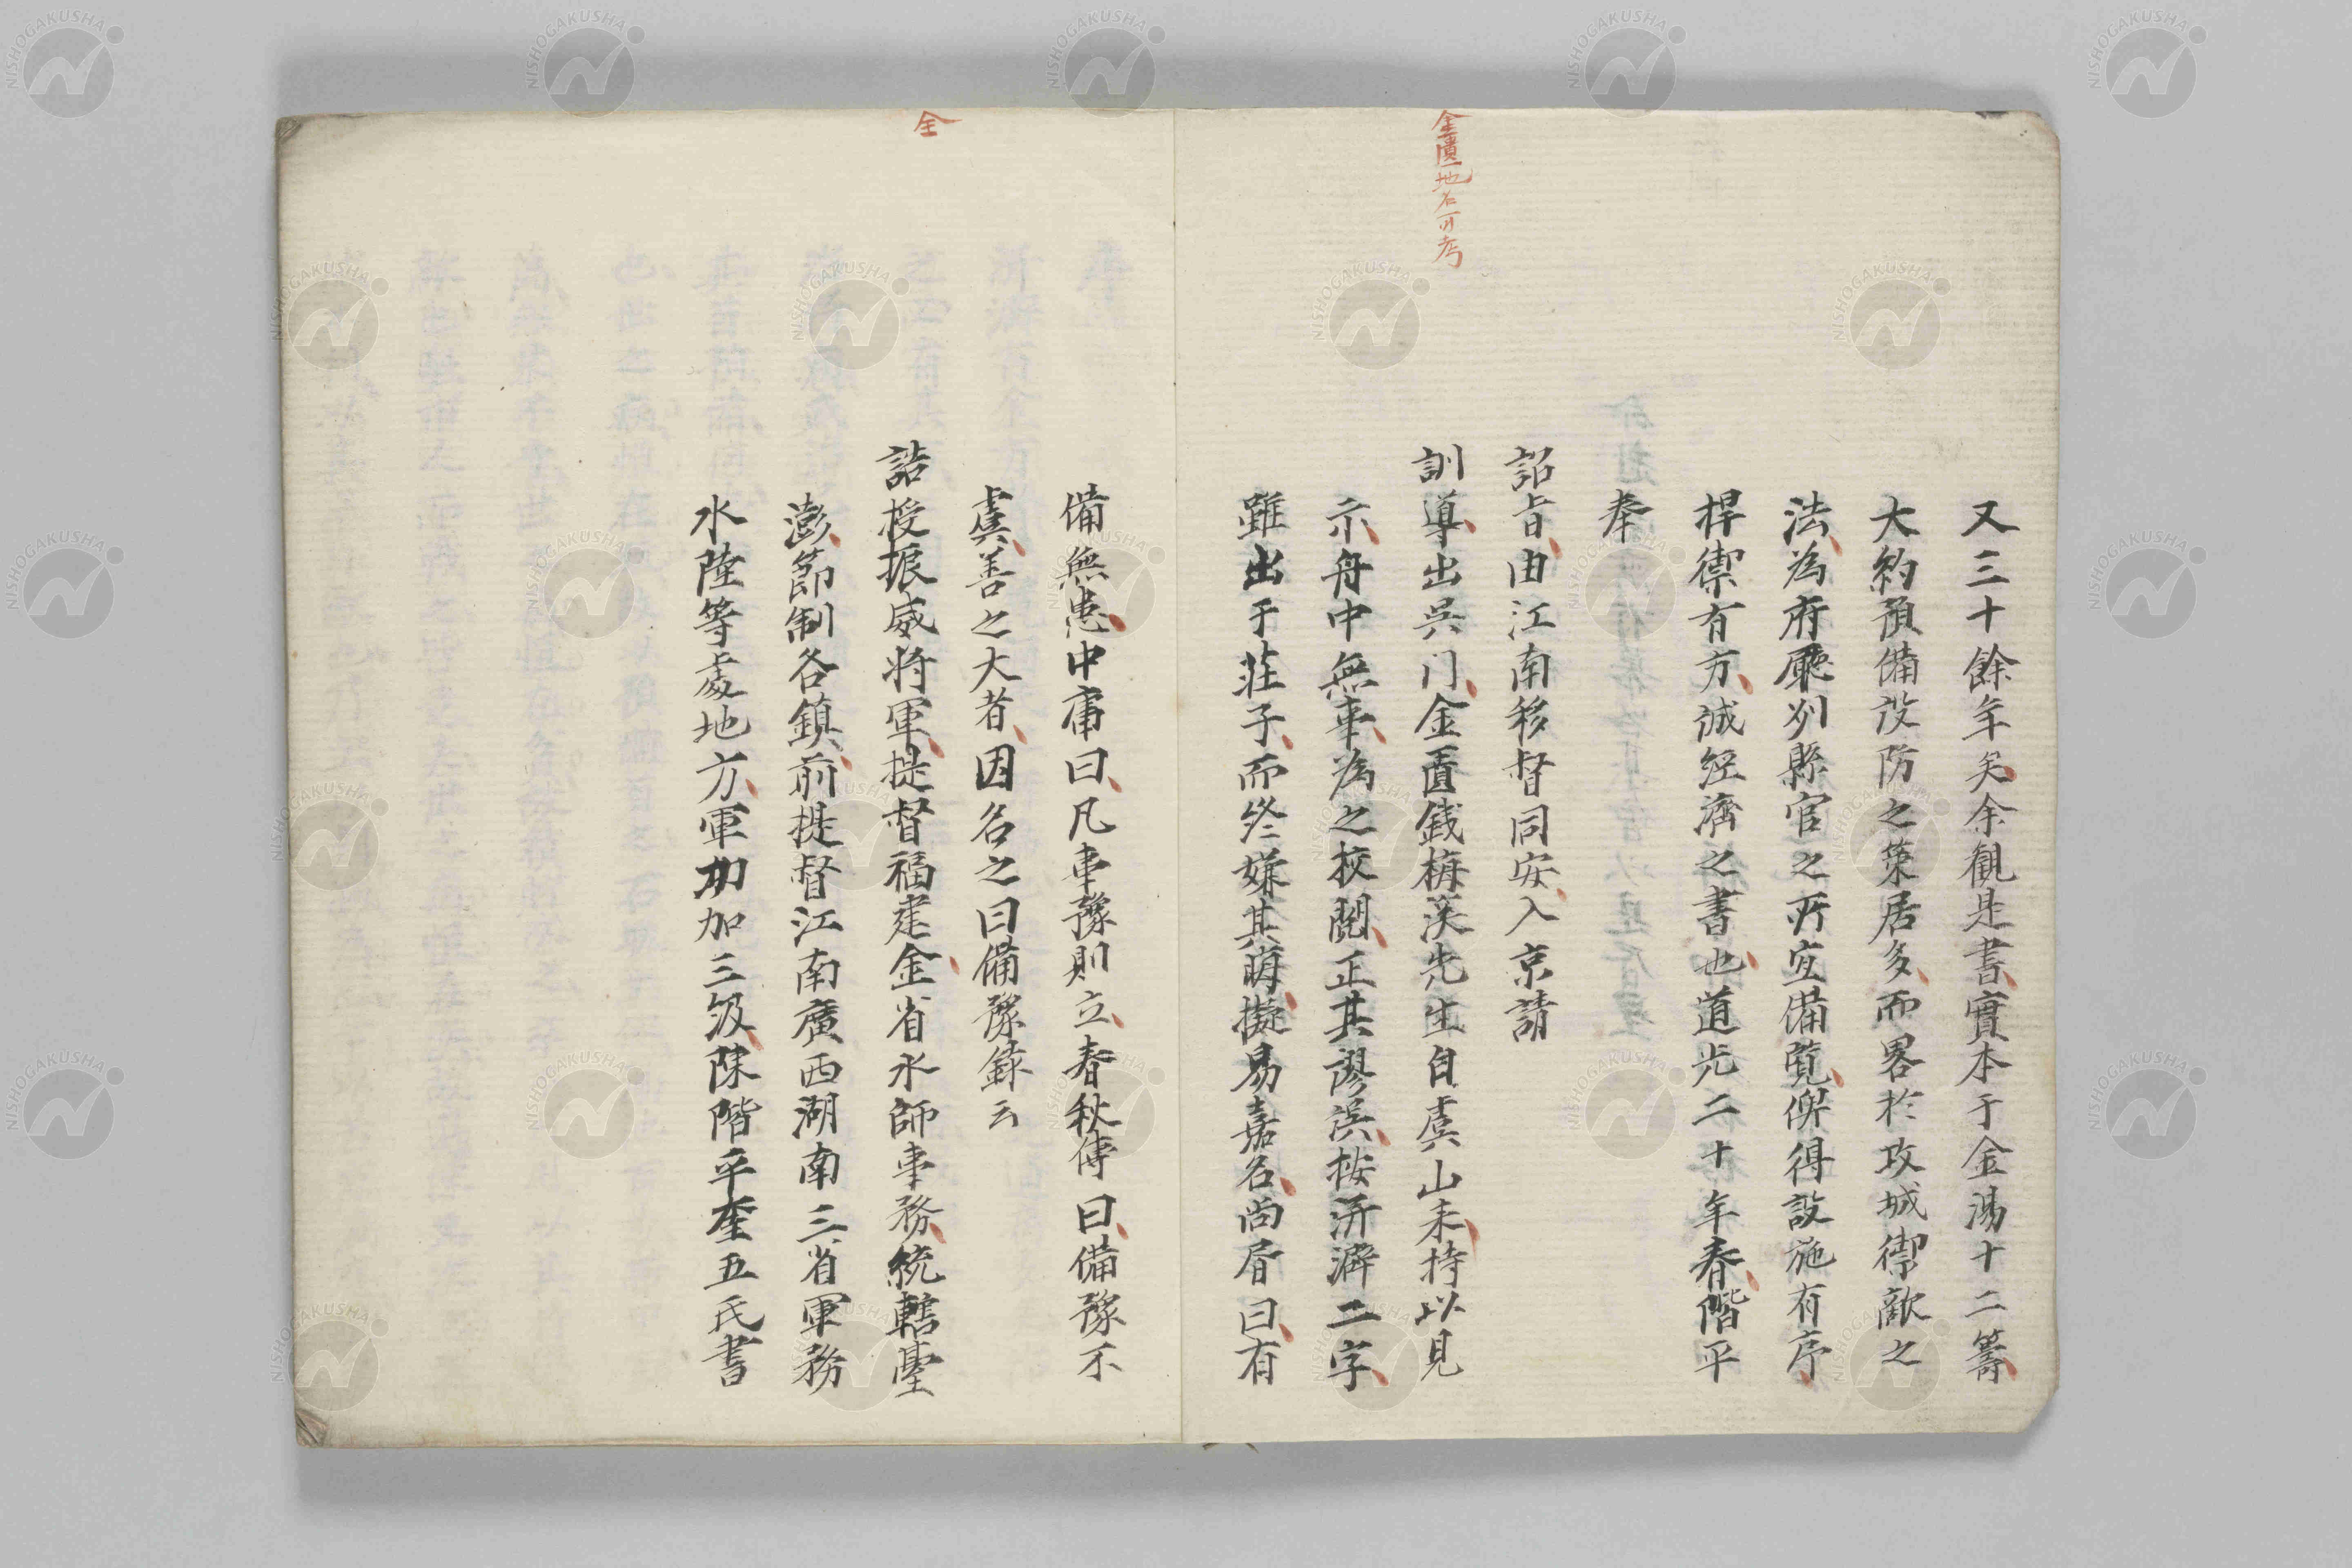 又三十餘年矣余観是書實本于金湯十二籌
大約預備設防之策居多而畧於攻城禦敵之
法為府廳州縣官之所宜備覧俾得設施有序
捍禦有方誠經濟之書也道光二十年春階平
奉
詔旨由江南移督同安入京請
金匱地名可考
訓導出吳门金匱錢梅溪先生自虞山来持以見
示舟中無事為之校閲正其謬誤按洴澼二字
雖出于莊子而終嫌其晦擬易嘉名尚書曰有
備無患中庸曰凡事豫則立春秋傳曰備豫不
虞善之大者因名之曰備豫錄云
全
誥授振威将軍提督福建金省水師事務統轄臺
澎節制各鎮前提督江南廣西湖南三省軍務
水陸等處地方軍功加三級陳階平奎五氏書
NISHOGAKUSHA